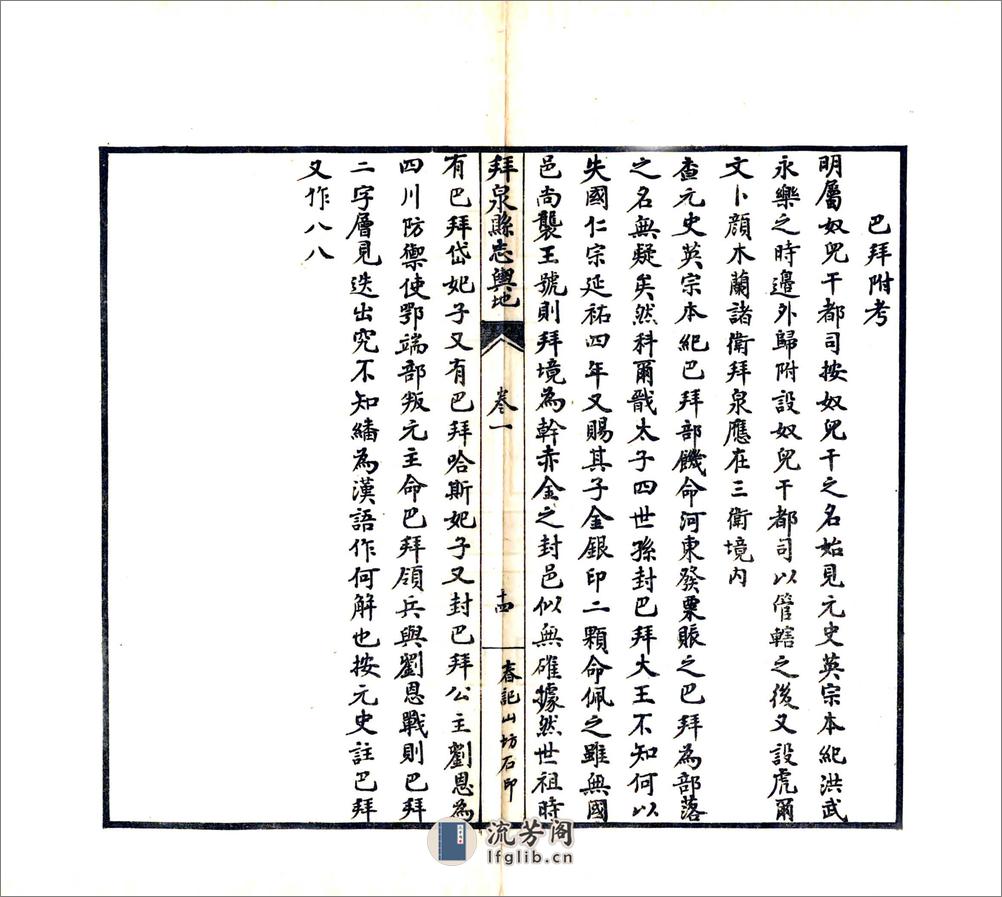 巴拜附考
明屬奴兒干都司按奴兒干之名始見元史英宗本紀洪武
永樂之時邊外歸附設奴兒干都司以管轄之後又設虎爾
文卜顏木蘭諸衛拜泉應在三衛境內
查元史英宗本紀巴拜部饑命河東發粟賑之巴拜為部落
之名無疑矣然科爾戩太子四世孫封巴拜大王不知何以
失國仁宗延祐四年又賜其子金銀印二顆命佩之雖無國
邑尚襲王號則拜境為幹赤金之封邑似無確據然世祖時
拜泉縣志輿地
卷一
十四
春記山坊石印
有巴拜岱妃子又有巴拜哈斯妃子又封巴拜公主劉恩為
四川防禦使鄂端部叛元主命巴拜領兵與劉恩戰則巴拜
二字層見迭出究不知繙為漢語作何解也按元史註巴拜
又作八八
流芳阁
lfglib.cn